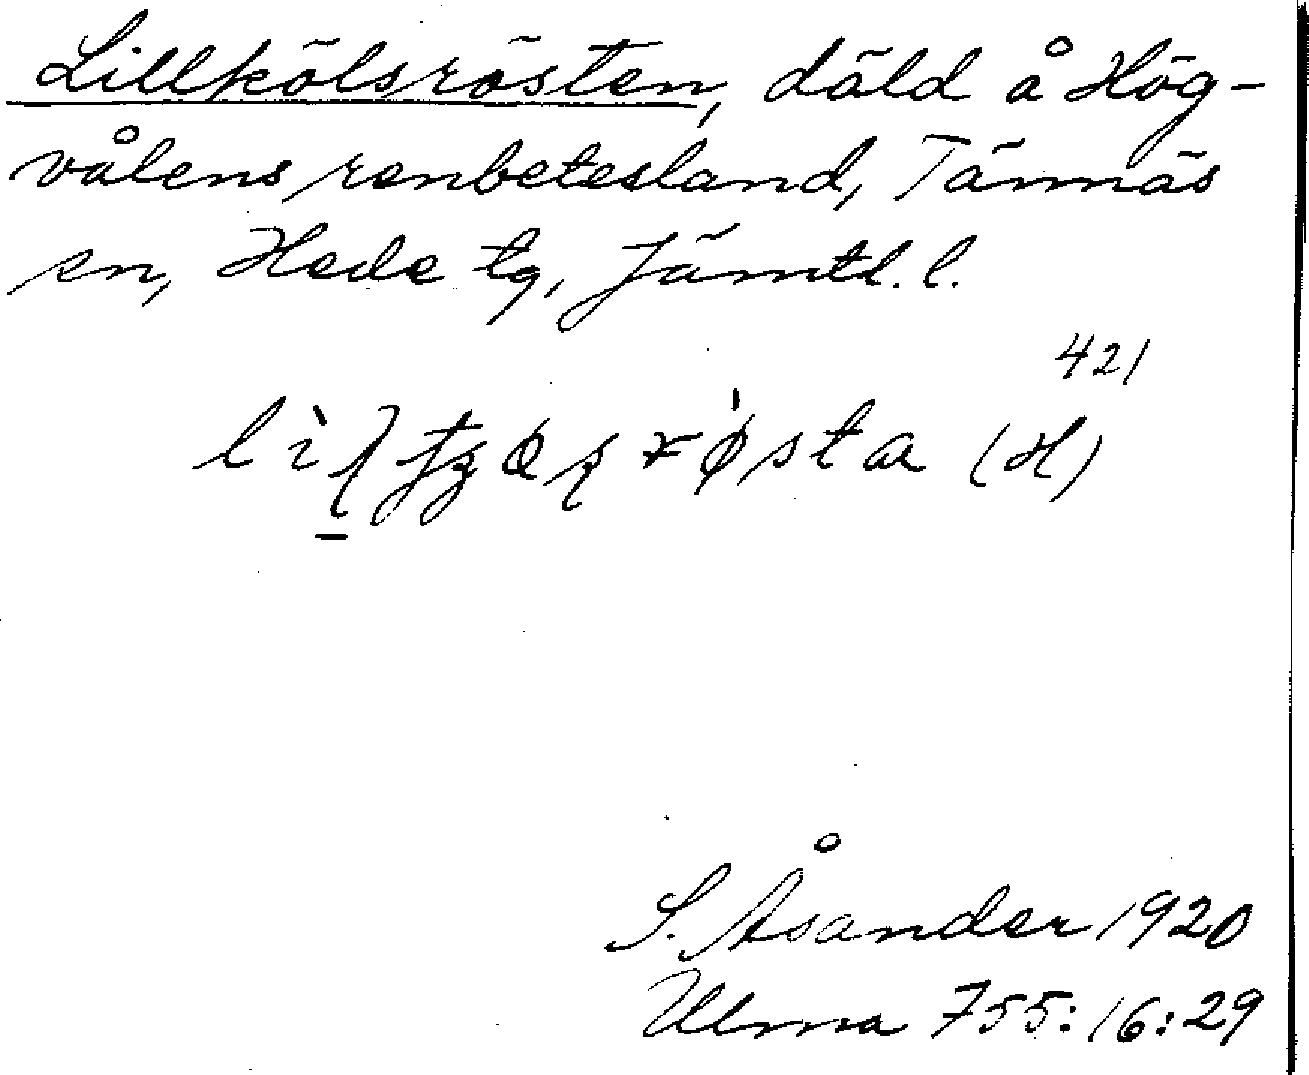 Lillkölsrösten, däld å Hög-
vålens renbetesland, Tännäs
sn, Hede tg, Jämtl. l.
421
(H)
S. Åsander 1920
Ulma 755:16:29